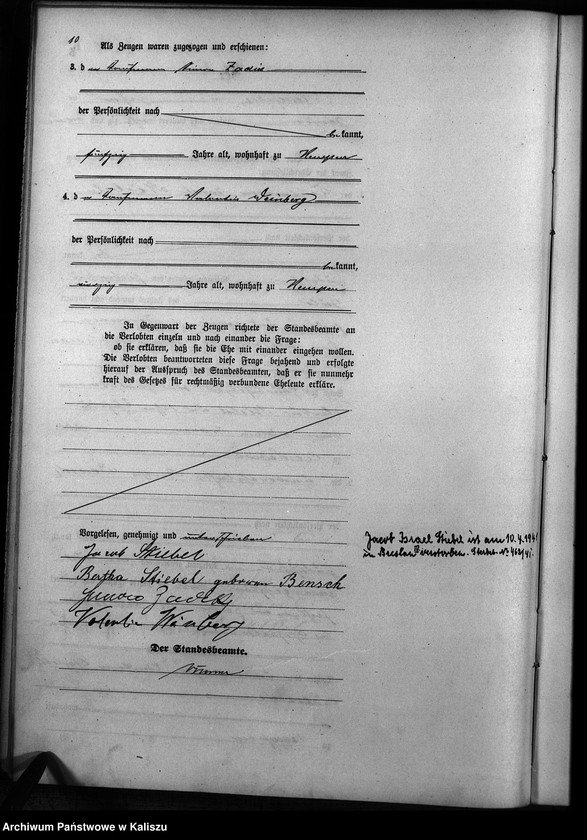 10
Als Zeugen waren zugezogen und erschienen:
3. der Kaufmann Simon Zadik
der Persönlichkeit nach
bekannt,
fünfzig Jahre alt, wohnhaft zu Kempen
4. der Kaufmann Valentin Weinberg
der Persönlichkeit nach
bekannt,
vierzig Jahre alt, wohnhaft zu Kempen
In Gegenwart der Zeugen richtete der Standesbeamte an
die Verlobten einzeln und nach einander die Frage:
ob sie erklären, daß sie die Ehe mit einander eingehen wollen.
Die Verlobten beantworteten diese Frage bejahend und erfolgte
hierauf der Ausspruch des Standesbeamten, daß er sie nunmehr
kraft des Gesetzes für rechtmäßig verbundene Eheleute erkläre.
Vorgelesen, genehmigt und unterschrieben
Jacob Stiebel
Bertha Stiebel geborene Bensch
Zadik
Valentin Weinberg
Der Standesbeamte.
Jacob Israel Stiebel ist am 10.4.1941
in Breslau verstorben. Sterbet. N°
Archiwum Państwowe w Kaliszu